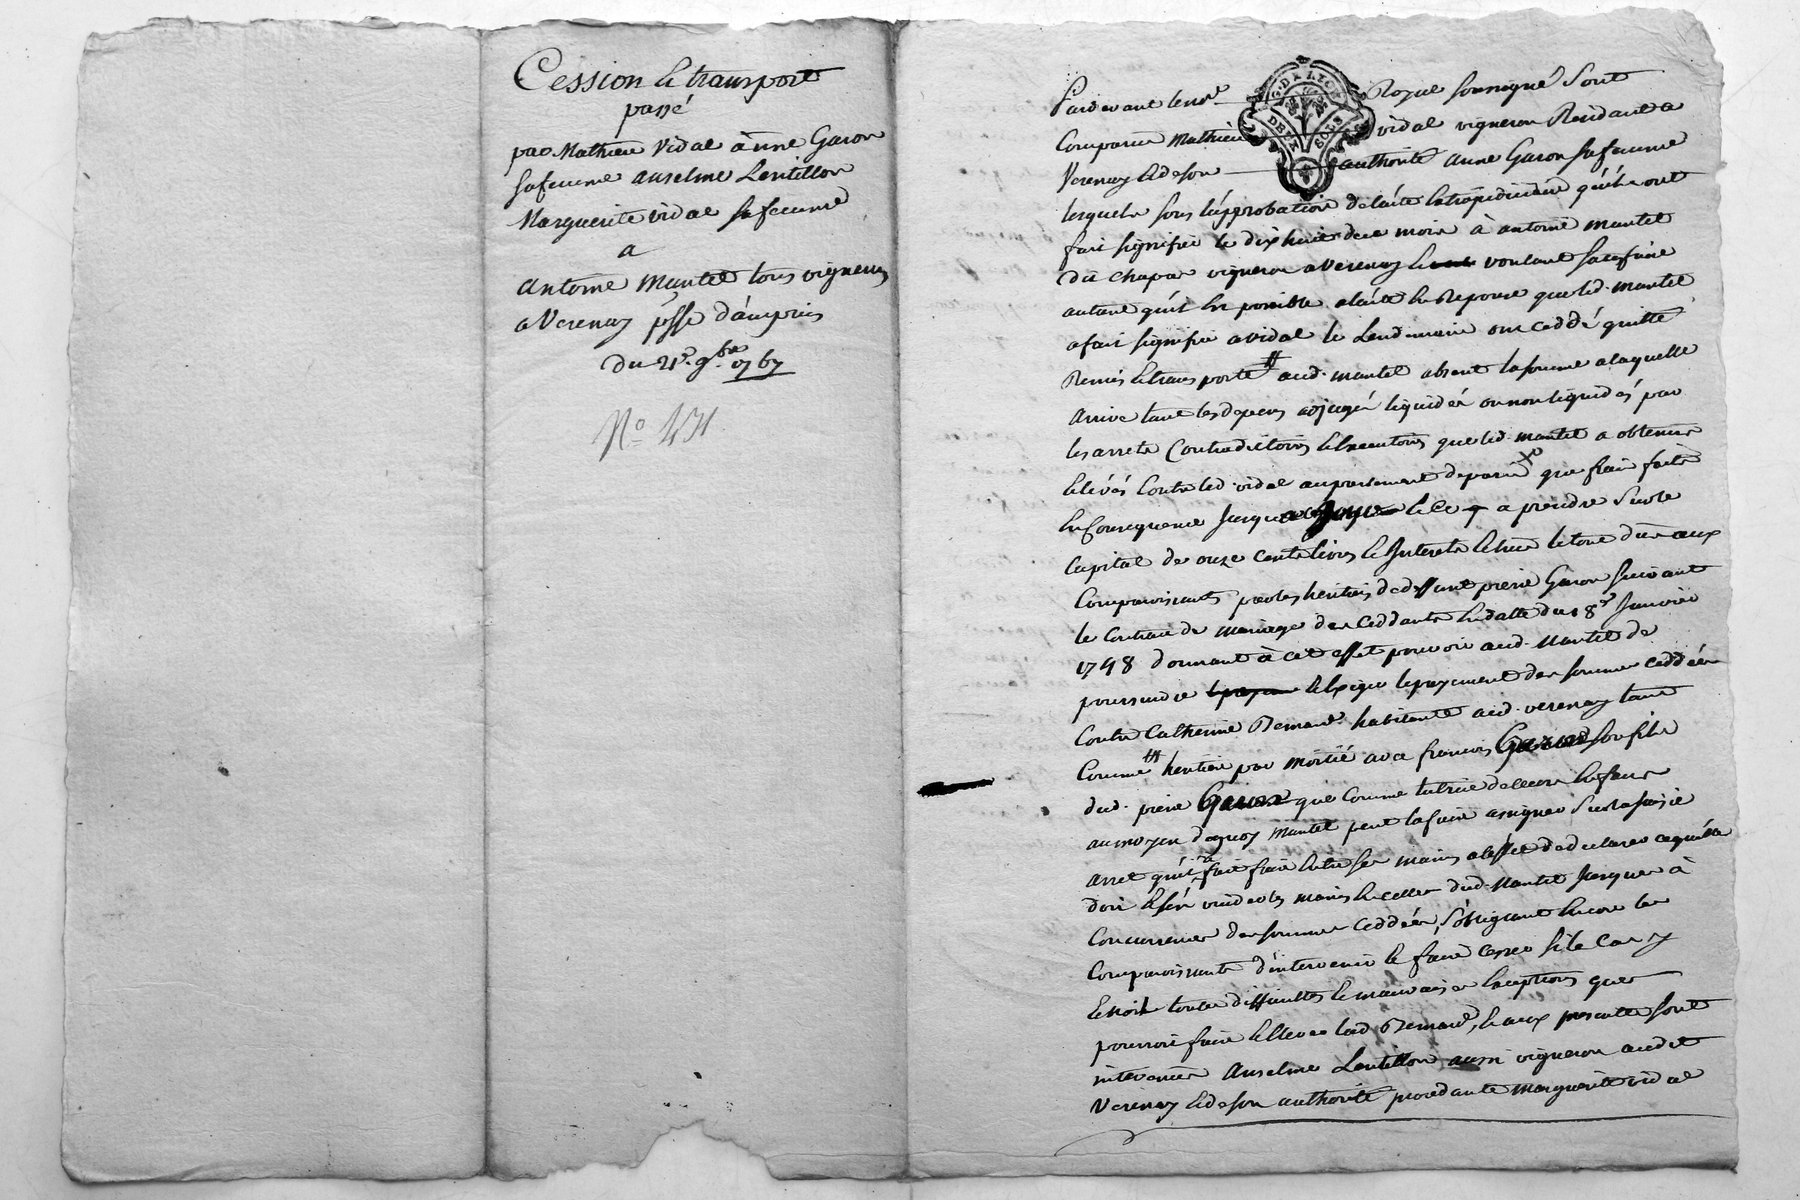 Cession et transport
passé
par Mathieu Vidal anne Garon
sa femme anselme Lentillon
Marguerite vidal sa femme
a
antoine Mantel tous vignerons
a Verenay psse d'ampuis
du 21e. 9bre 1767
No 431
G. DE LYON
DEUX SOLS
Pardevant le nore Royal soussigné sont
Comparus Mathieu vidal vigneron Residant a
Verenay et de son authorité anne Garon sa femme
lesquels sous l'approbation de l'acte qu'ils ont
fait signifier le dix huit de ce mois à antoine mantel
du chapar vigneron a Verenay et voulant satisfaire
autant qu'il est possible a la Reponse que led. mantel
a fait signifier a vidal le Lendemain ont ceddé quitté
Remis et transporté aud. mantel absent la somme a laquelle
arrive tant les depens adjugés liquidés ou non liquidés par
les arrets Contradictoires et executoires que led. mantel a obtenus
et levés Contre led. vidal au parlement de paris que frais faits
en Consequence jusques a ce jour et ce a prendre sur le
Capital de onze cents livres et Interets dus aux
Comparoissants par les heritiers de deffunt pierre Garon suivant
le Contrat de mariage des Ceddants en datte du 18e Janvier
1748 donnant à cet effet pouvoir aud. Mantel de
poursuivre et exiger le payement des sommes ceddées
Contre Catherine Bernard habitante aud. verenay tant
Comme heritiere par moitié avec francois Garon son fils
dud. pierre Garon que Comme tutrice de leurs enfans
au moyen de quoy Mantel peut la faire assigner sur la saisie
arret qu'il a fait faire entre ses mains a l'effet de declarer ce qu'elle
doit et s'en vuider les mains en celles dud. Mantel jusques à
Concurrence des sommes Ceddées, s'obligeant encore les
Comparoissants d'intervenir et faire cesser si le Cas y
echoit toutes difficultes et mauvaises exceptions que
pourroit faire et elever lad Bernard, et aux presentes sont
intervenus Anselme Lentillon aussi vigneron audit
Verenay et de son authorité procedante marguerite vidal